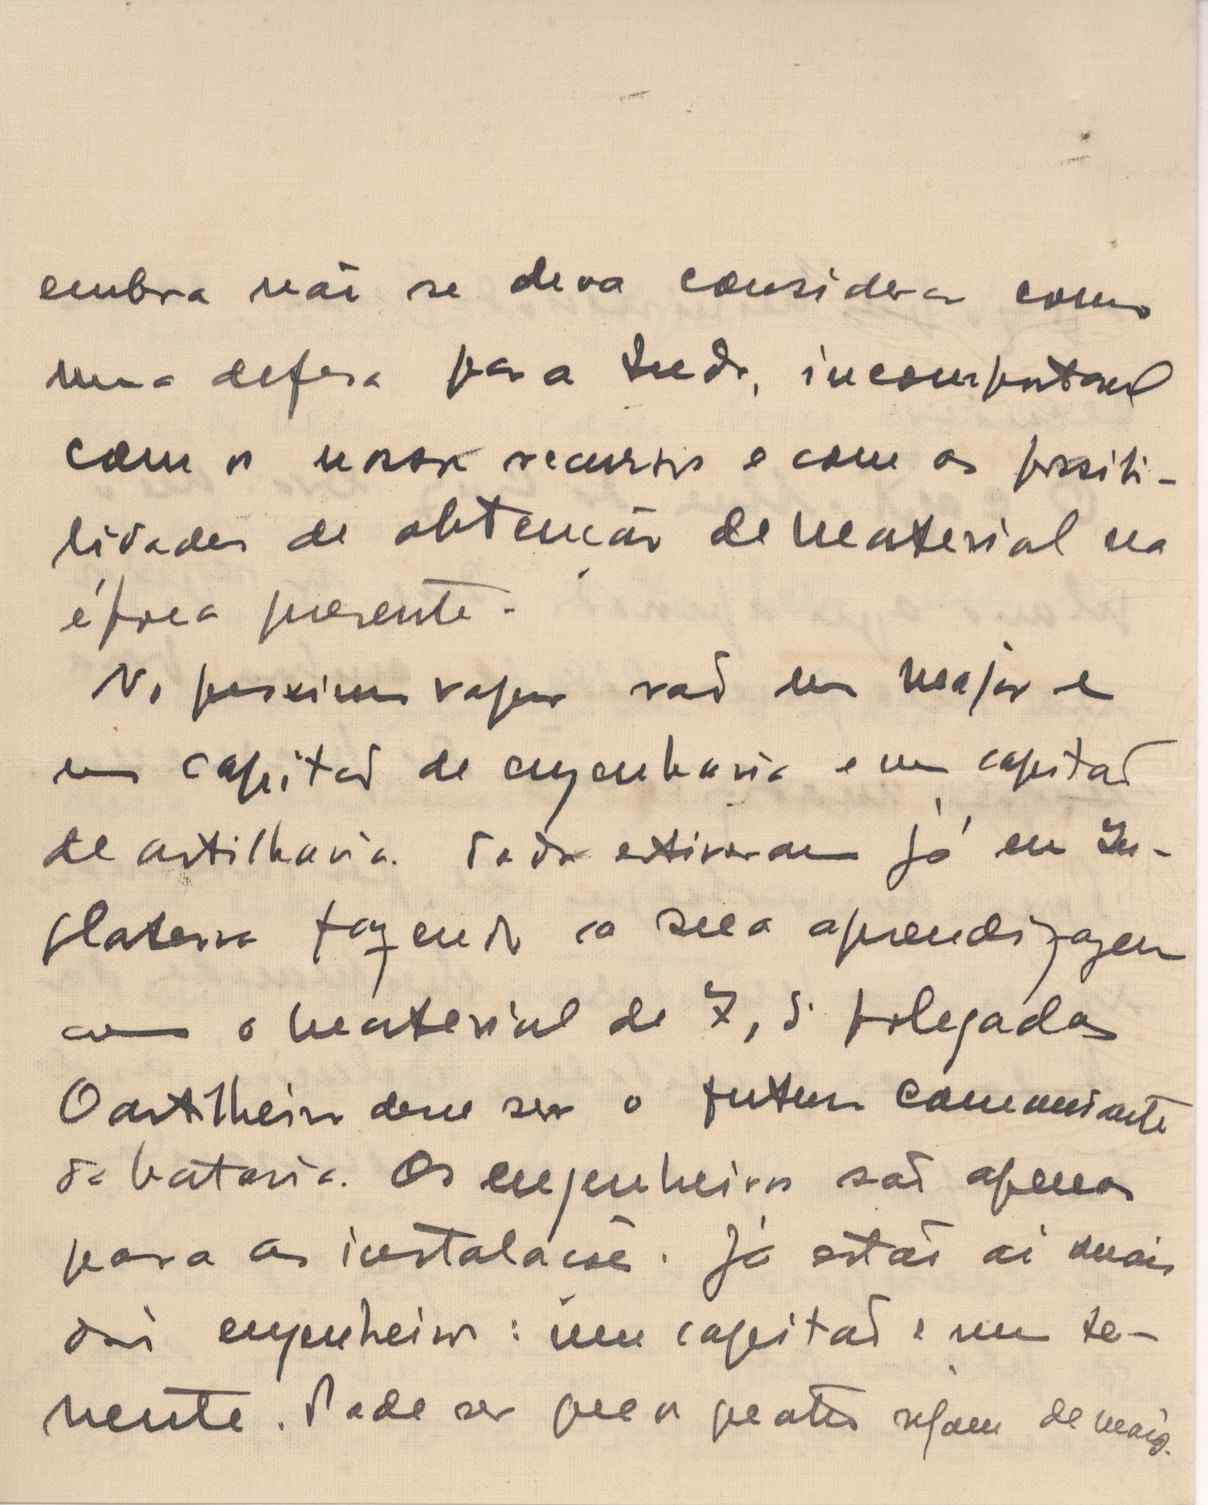 embora não se deva considerar como
uma defesa para tudo, incomportavel
com os nossos recursos e com as possibi-
lidades de obtenção de material na
época presente.
No proximo vapor vão um major e
um capitão de engenharia e um capitão
de artilharia. Todos estiveram já em In-
glaterra fazendo a sua aprendizagem
com o material de 7,5 polegadas
O artilheiro deve ser o futuro comandante
da bataria. Os engenheiros são apenas
para as instalações. Já estão aí mais
dois engenheiros: um capitão e um te-
nente. Pode ser que os quatro sejam demais.